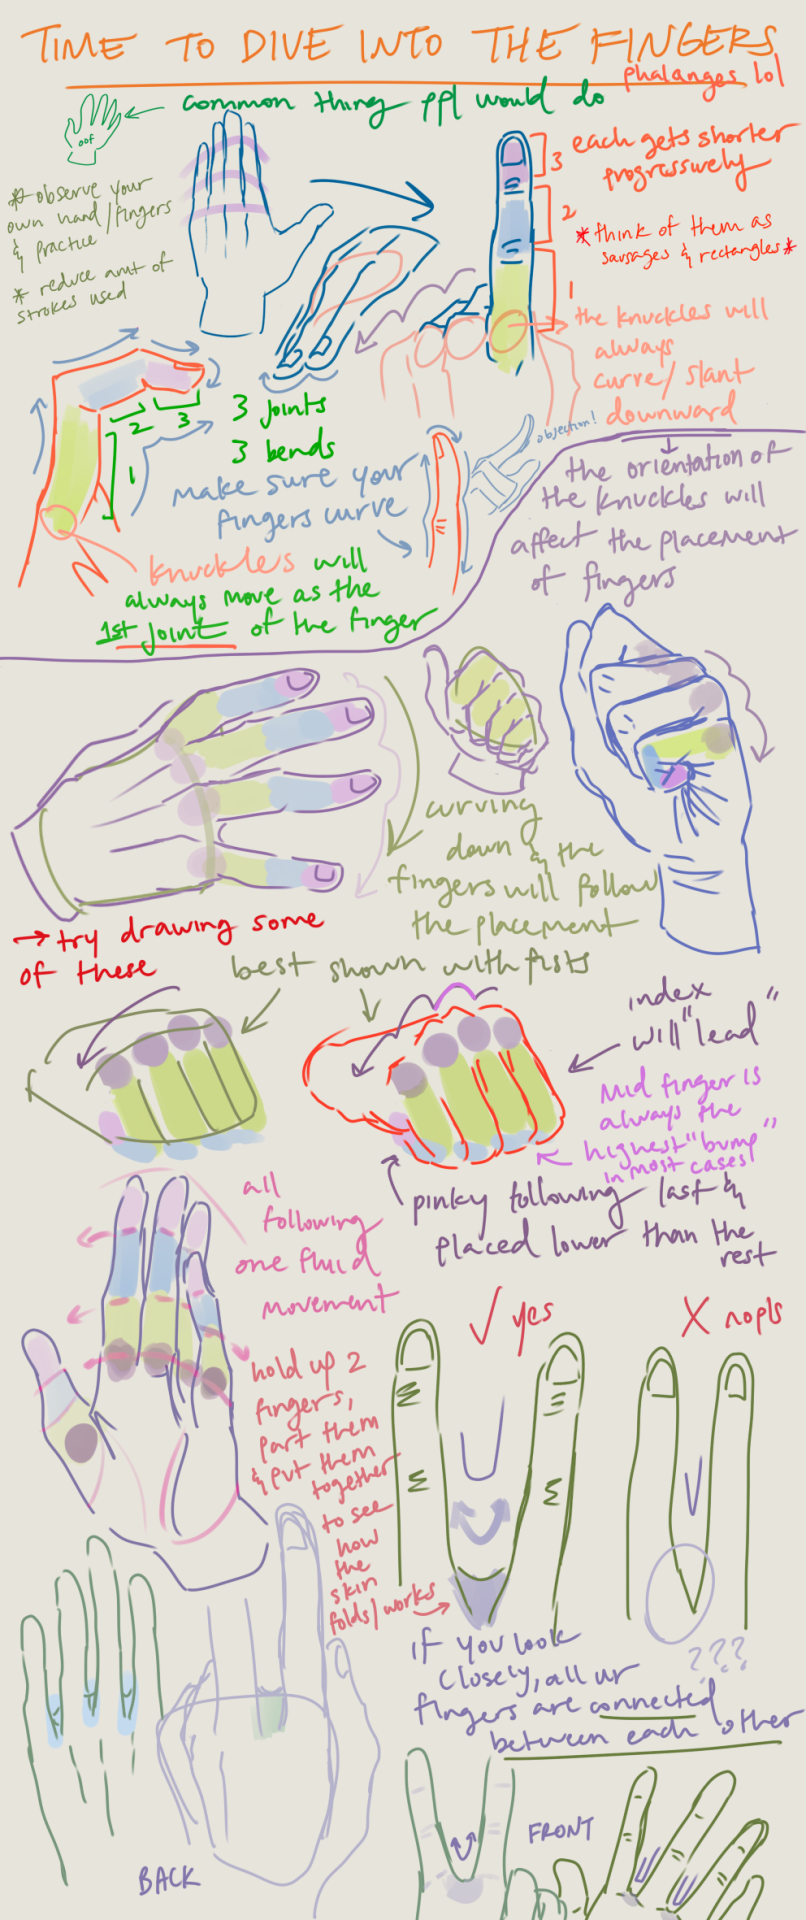 TIME TO DIVE INTO THE FINGERS
phalanges lol
common thing ppl would do
oof
* observe your
own hand/fingers
& practice
* reduce amt of
strokes used
3
each gets shorter
progressively
2
* think of them as
sausages & rectangles *
1
the knuckles will
always
curve/slant
downward
2 3
1
3 joints
3 bends
make sure your
fingers curve
objection!
knuckles will
always move as the
1st joint of the finger
the orientation of
the knuckles will
affect the placement
of fingers
curving
down & the
fingers will follow
the placement
→ try drawing some
of these
best shown with fists
index
will "lead"
Mid finger is
always the
highest "bump"
in most cases
pinky following last &
placed lower than the
rest
all
following
one fluid
movement
✓ yes
X no pls
hold up 2
fingers,
part them
& put them
together
to see
how
the
skin
folds/works
???
if you look
closely, all ur
fingers are connected
between each other
BACK
FRONT